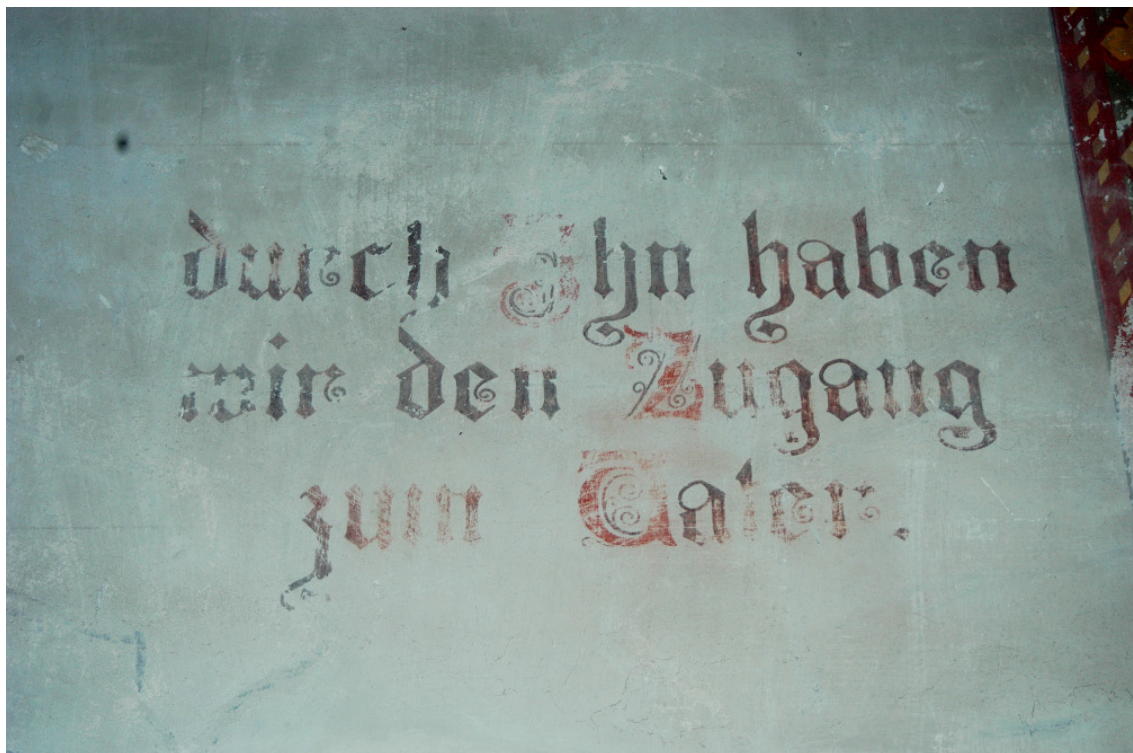 durch Ihn haben
wir den Zugang
zum Vater.